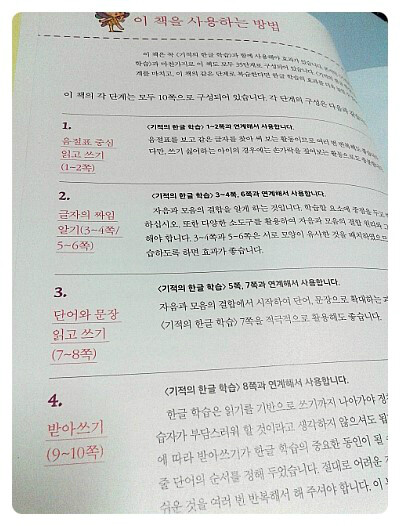 이 책을 사용하는 방법
이 책은 꼭 <기적의 한글 학습>과 함께 사용해야 효과가 있습니다.
학습>과 마찬가지로 이 책도 모두 35단계로 구성되어 있습니다.
계를 마치고, 이 책의 같은 단계로 복습한다면 한글 학습의 효과를
이 책의 각 단계는 모두 10쪽으로 구성되어 있습니다. 각 단계의 구성은 다음과
1.
음절표 중심
읽고 쓰기
(1~2쪽)
<기적의 한글 학습> 1~2쪽과 연계해서 사용합니다.
음절표를 보고 같은 글자를 찾아 써 보는 활동이므로 여러 번 반복해도 좋습니다.
다만, 쓰기 싫어하는 아이의 경우에는 손가락으로 짚어보는 활동으로도
2.
글자의 짜임
알기(3~4쪽/
5~6쪽)
<기적의 한글 학습> 3~4쪽, 6쪽과 연계해서 사용합니다.
자음과 모음의 결합을 알게 하는 것입니다. 학습할 요소에 중점을 두고
하십시오. 또한 다양한 소도구를 활용하여 자음과 모음의 결합 원리와
해야 합니다. 3~4쪽과 5~6쪽은 서로 모양이 유사한 것을 배치하였으므로
습하도록 하면 효과가 좋습니다.
3.
단어와 문장
읽고 쓰기
(7~8쪽)
<기적의 한글 학습> 5쪽, 7쪽과 연계해서 사용합니다.
자음과 모음의 결합에서 시작하여 단어, 문장으로 확대하는
<기적의 한글 학습> 7쪽을 적극적으로 활용해도 좋습니다.
4.
받아쓰기
(9~10쪽)
<기적의 한글 학습> 8쪽과 연계해서 사용합니다.
한글 학습은 읽기를 기반으로 쓰기까지 나아가야
습자가 부담스러워 할 것이라고 생각하지 않으셔도 됩
에 따라 받아쓰기가 한글 학습의 중요한 동인이 될 수
줄 단어의 순서를 정해 두었습니다. 절대로 어려운
쉬운 것을 여러 번 반복해서 해 주셔야 합니다. 이